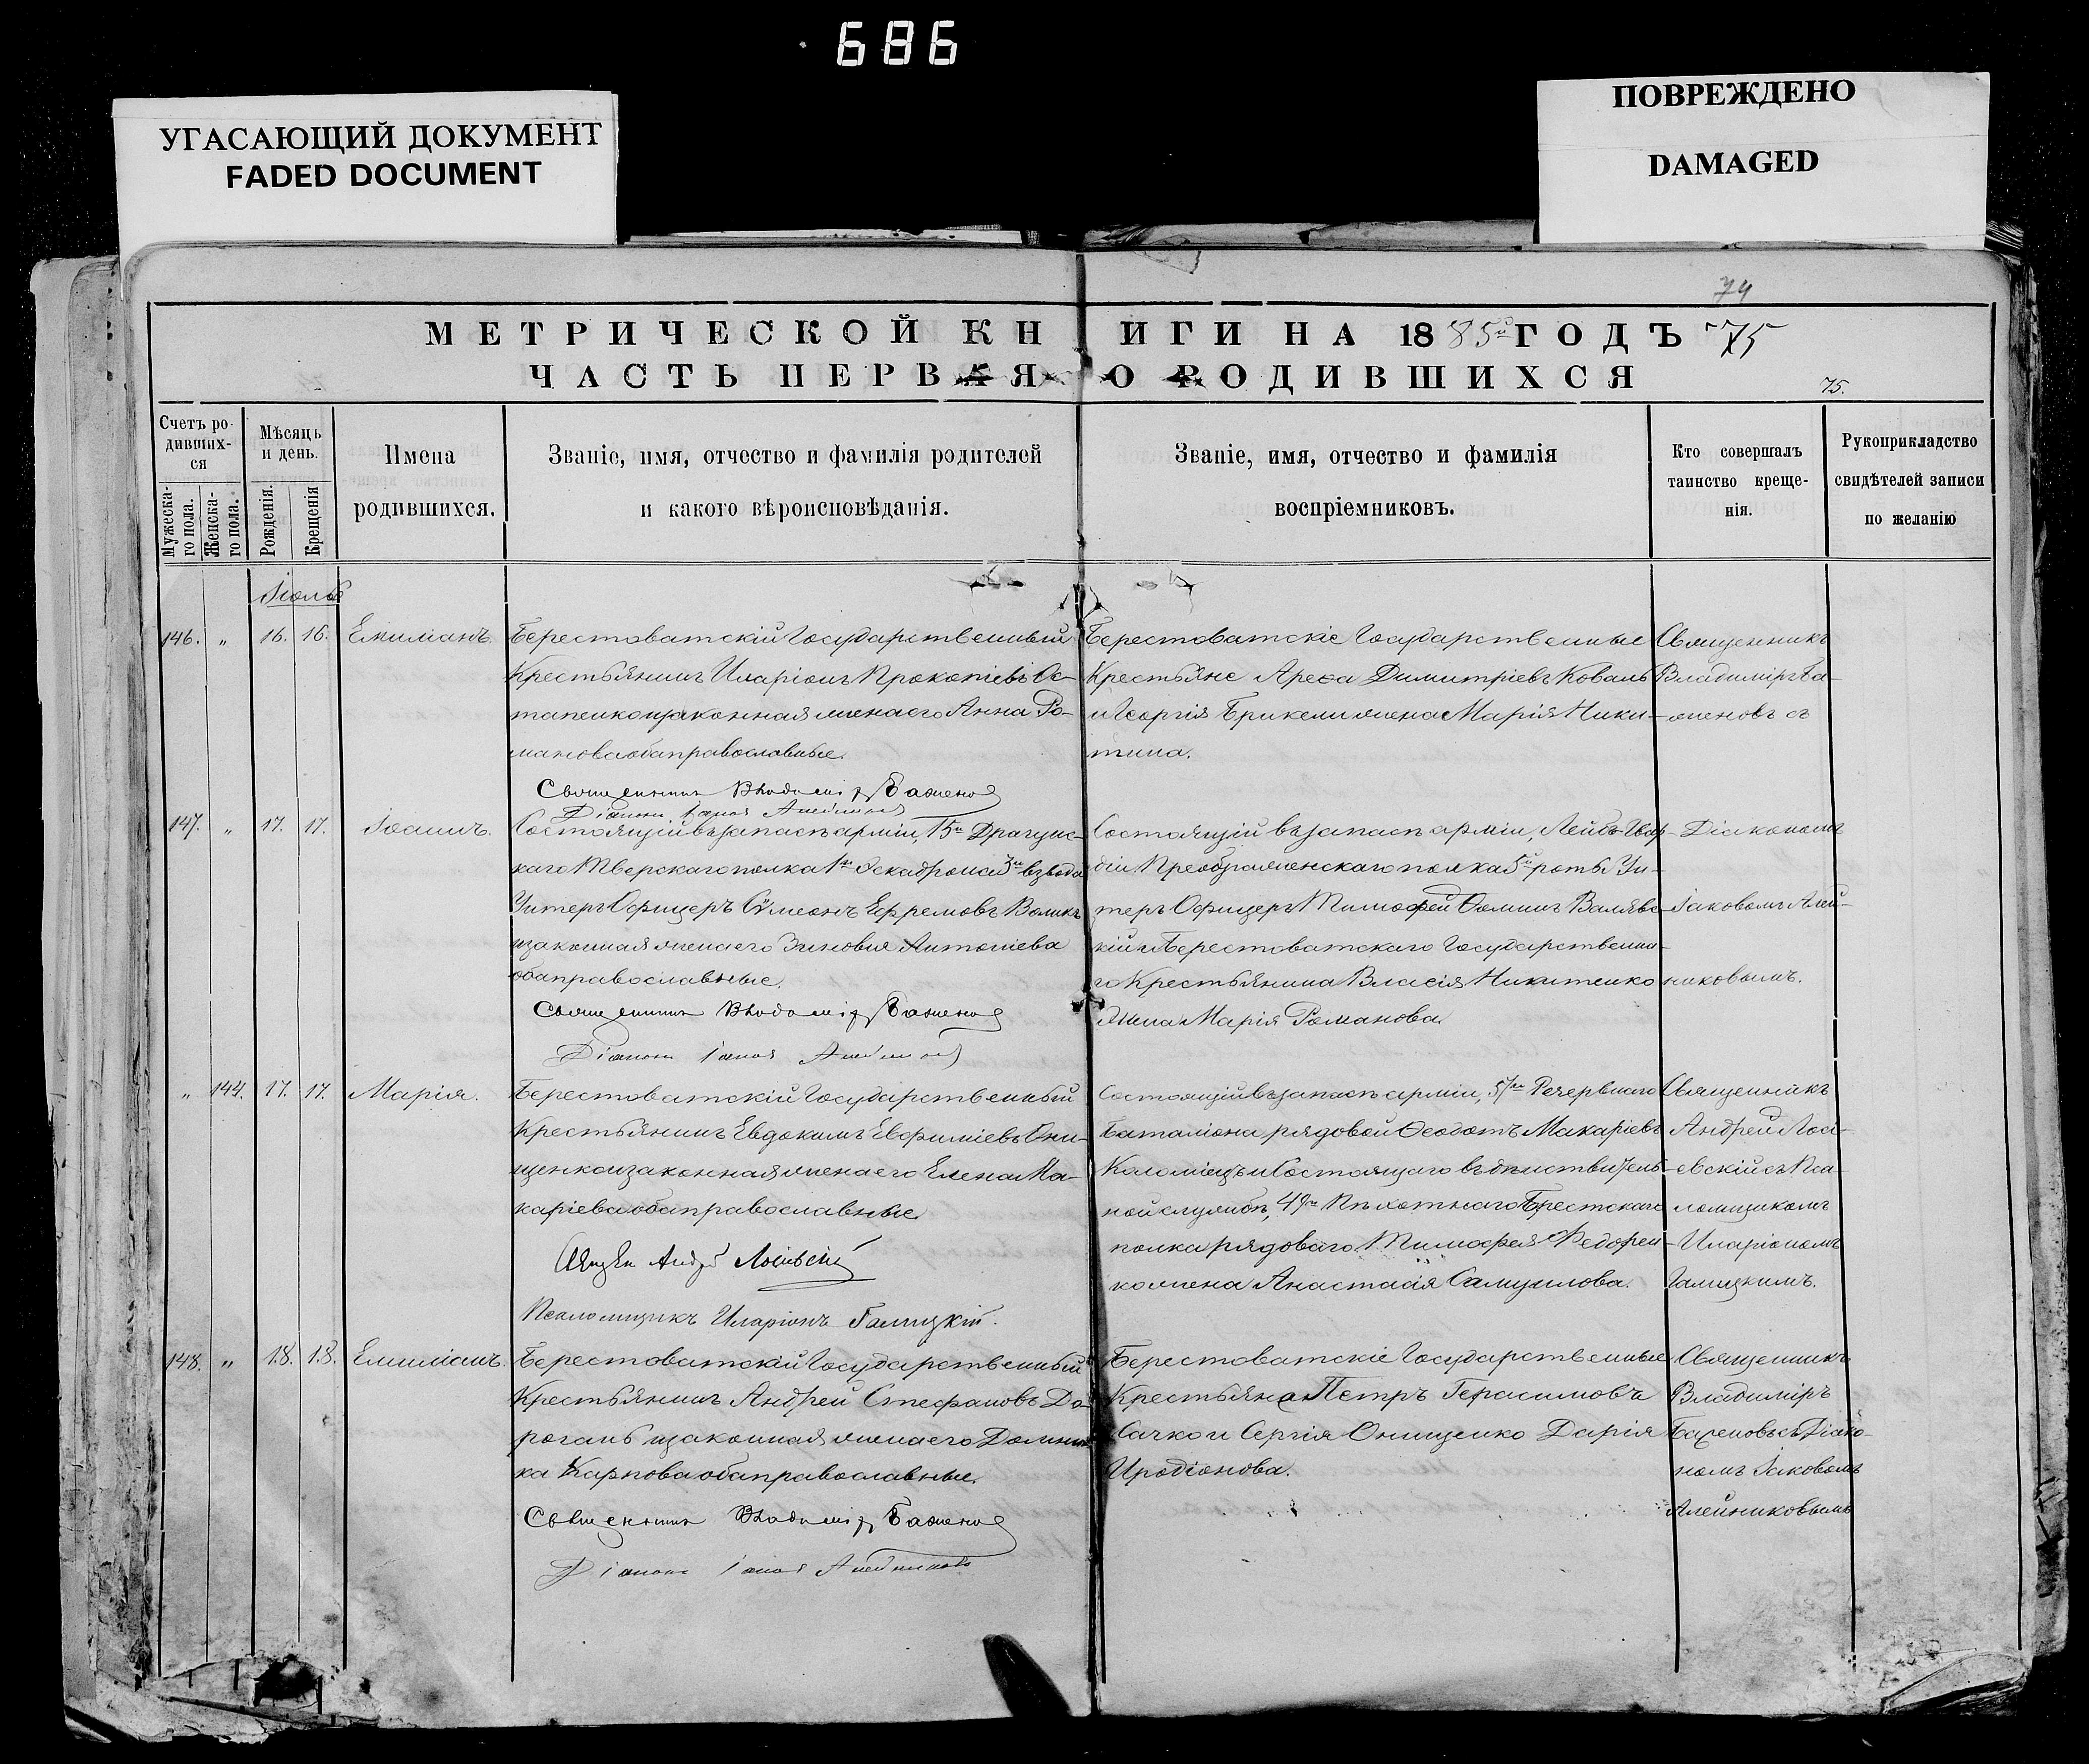 686
УГАСАЮЩИЙ ДОКУМЕНТ
FADED DOCUMENT
ПОВРЕЖДЕНО
DAMAGED
74
МЕТРИЧЕСКОЙ КНИГИ НА 1885й ГОДЪ 75
ЧАСТЬ ПЕРВАЯ О РОДИВШИХСЯ
75.
Счетъ ро-
дивших-
ся
Мужеска-
го пола.
Женска-
го пола.
Мѣсяцъ
и день.
Рожденія.
Крещенія
Имена
родившихся.
Званіе, имя, отчество и фамилія родителей
и какого вѣроисповѣданія.
Званіе, имя, отчество и фамилія
воспріемниковъ.
Кто совершалъ
таинство креще-
нія.
Рукоприкладство
свидѣтелей записи
по желанію
Іюль
146. " 16. 16. Емиліанъ.
Берестоватскій Государственный
Крестьянинъ Иларіонъ Прокопіевъ Ос-
тапенко и законная жена его Анна Ро-
манова оба православные.
Священникъ Владиміръ Баженов
Діаконъ Іаков Алейников
Берестоватскіе Государственные
Крестьяне Ареѳа Димитріевъ Коваль
и Георгія Брикели жена Марія Ники-
тина.
Священникъ
Владиміръ Ба-
женовъ съ
147. " 17. 17. Іоаннъ.
Состоящій въ запасѣ арміи, 15го Драгунс-
каго Тверскаго полка 1го Эскадрона 3го взвода
Унтеръ Офицеръ Сѵмеонъ Ефремовъ Воликъ
и законная жена его Зиновія Антоніева
оба православные.
Священникъ Владиміръ Баженов
Діаконъ Іаков Алейников
Состоящій въ запасѣ арміи, Лейбъ-Гвар-
діи Преображенскаго полка 5й роты Ун-
теръ Офицеръ Тимоѳей Ѳоминъ Валявс-
кій и Берестоватскаго Государственна-
го Крестьянина Власія Никитенко
жена Марія Романова.
Діакономъ
Іаковомъ Алей-
никовымъ.
" 144. 17. 17. Марія.
Берестоватскій Государственный
Крестьянинъ Евдокимъ Евфиміевъ Они-
щенко и законная жена его Елена Ма-
каріева оба православные.
Священ Андрей Лосіевскій
Псаломщикъ Иларіонъ Галицкій.
Состоящій въ запасѣ арміи, 57го Резервнаго
Баталіона рядовой Ѳеодотъ Макаріевъ
Коломіецъ и Состоящаго въ дѣйствитель-
ной службѣ, 49го Пѣхотнаго Брестскаго
полка рядоваго Тимоѳея Федорен-
ко жена Анастасія Самуилова.
Священникъ
Андрей Лоси-
евскій съ Пса-
ломщикомъ
Иларіономъ
Галицкимъ.
148. " 18. 18. Емиліанъ.
Берестоватскій Государственный
Крестьянинъ Андрей Стефановъ До-
рогань и законная жена его Домни-
ка Карпова оба православные.
Священникъ Владиміръ Баженов
Діаконъ Іаков Алейников
Берестоватскіе Государственные
Крестьяне Петръ Герасимовъ
Сачко и Сергія Онищенко Дарія
Иродіонова.
Священникъ
Владиміръ
Баженовъ съ Діако-
номъ Іаковомъ
Алейниковымъ